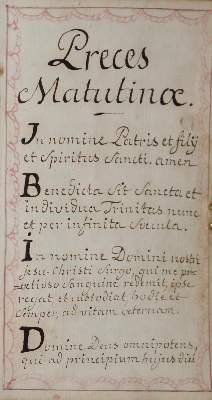 Preces
Matutinæ.
In nomine Patris et filij
et Spiritus Sancti. amen
Benedicta Sit Sancta et
individua Trinitas nunc
et per infinita Sæcula.
In nomine Domini nostri
Jesu Christi Surgo, qui me pre
tioso Sanguine redemit, ipse
regat, et custodiat hodie et
Semper, ad vitam æternam.
Domine Deus omnipotens,
qui ad principium hujus diei